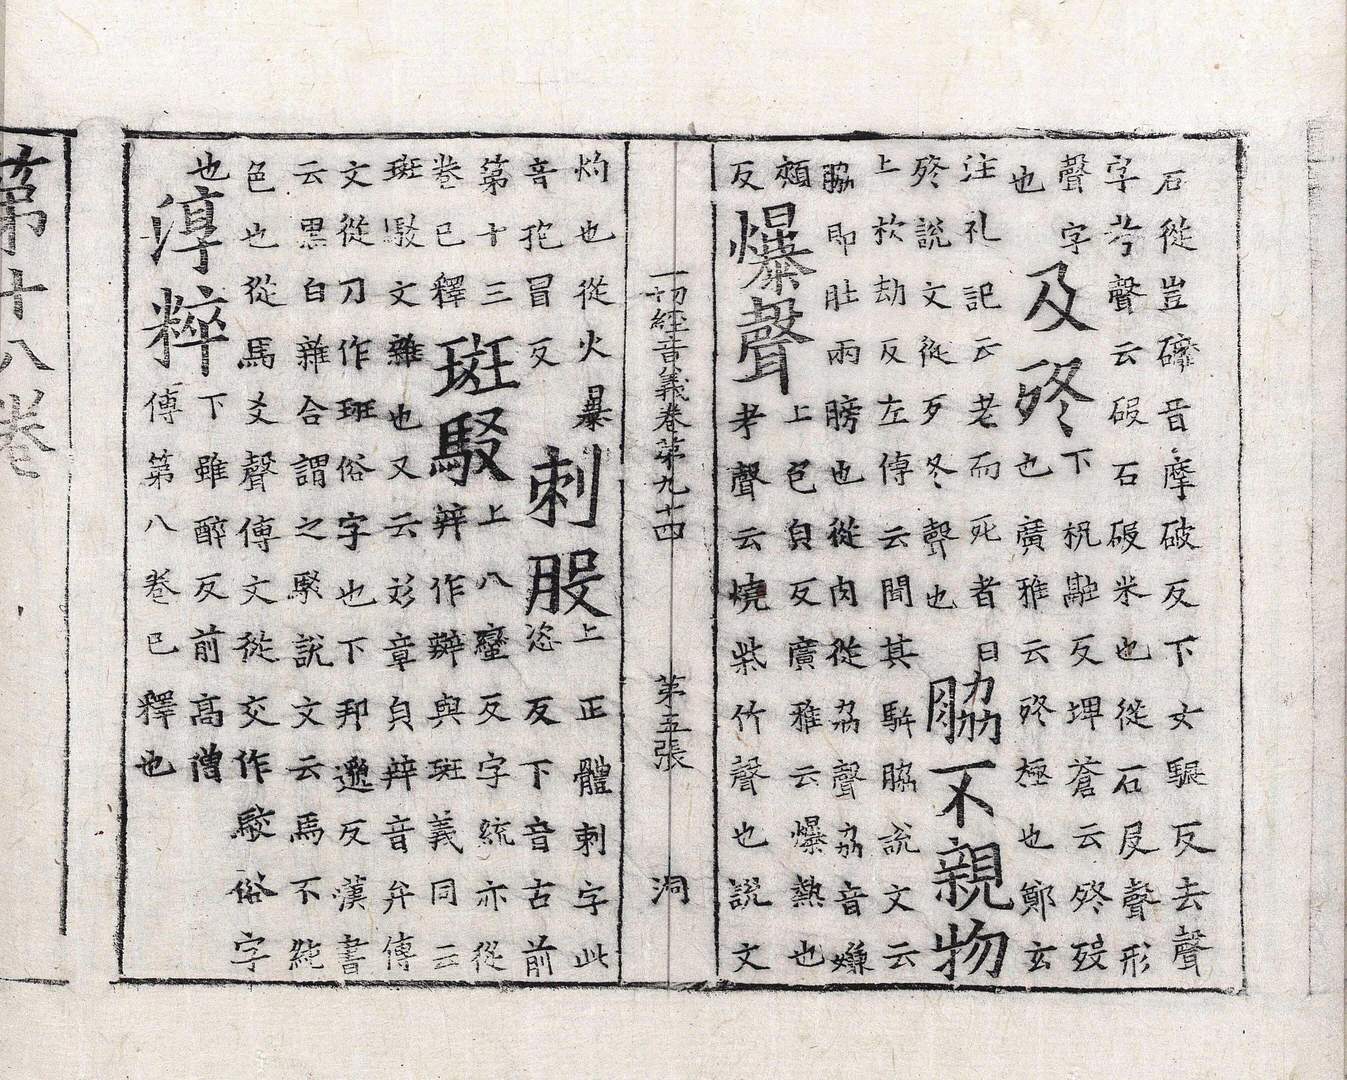 石從豈礳音摩破反下女反去聲
字考聲云碾石碾米也從石㞋聲形
聲字
也
及𣧩
下祝融反埤蒼云𣧩歿
也廣雅云𣧩極也鄭玄
注礼記云老而死者曰
𣧩說文從歹冬聲也
脇不親物
上杴劫反左傳云聞其駢脇說文云
脇即肚兩膀也從肉從劦聲劦音嫌
頰
反
爆聲
上包皃反廣雅云爆熱也
考聲云燒柴竹聲也說文
一切經音義卷第九十四 第五張 洞
灼也從火暴
音孢冒反
刺股
上正體刾字此
恣反下音古前
第十三
卷已釋
斑駮
上八蠻反字統亦從
辡作辬與斑義同云
斑駁文雜也又云彣章皃辡音弁傳
文從刀作班俗字也下邦邈反漢書
云黑白雜合謂之駁說文云馬不純
色也從馬爻聲傳文從交作駮俗字
也
淳粹
下雖醉反前高僧
傳第八卷已釋也
第十八卷